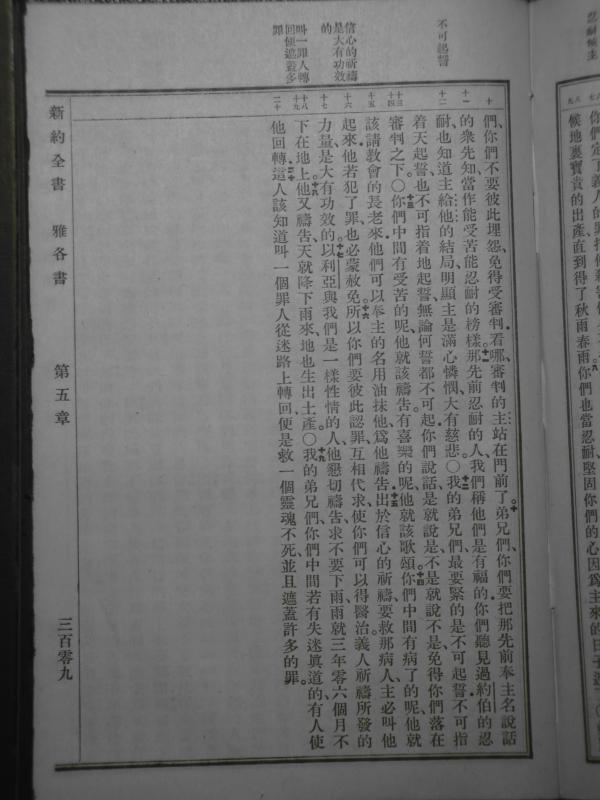 忍耐候主
八
九
你們
候地裏寶貴的出產直到得了秋雨春雨你們也當忍耐堅固你們的心因爲主來的日子
不可起誓
信心的祈禱
是大有功效
的
叫一罪人轉
回便遮蓋多
罪
十
十一
十二
十三
十四
十五
十六
十七
十八
十九
二十
們、你們不要彼此埋怨、免得受審判、看哪、審判的主站在門前了。十弟兄們、你們要把那先前奉主名說話
的衆先知、當作能受苦能忍耐的榜樣。十一那先前忍耐的人、我們稱他們是有福的、你們聽見過約伯的忍
耐、也知道主給他的結局、明顯主是滿心憐憫、大有慈悲。〇十二我的弟兄們、最要緊的是不可起誓、不可指
着天起誓、也不可指着地起誓、無論何誓都不可起、你們說話、是就說是、不是就說不是、免得你們落在
審判之下。〇十三你們中間有受苦的呢、他就該禱告、有喜樂的呢、他就該歌頌。十四你們中間有病了的呢、他就
該請教會的長老來、他們可以奉主的名用油抹他、爲他禱告。十五出於信心的祈禱、要救那病人、主必叫他
起來、他若犯了罪、也必蒙赦免。十六所以你們要彼此認罪、互相代求、使你們可以得醫治、義人祈禱所發的
力量、是大有功效的。十七以利亞與我們是一樣性情的人、他懇切禱告、求不要下雨、雨就三年零六個月不
下在地上。十八他又禱告、天就降下雨來、地也生出土產。〇十九我的弟兄們、你們中間若有失迷眞道的、有人使
他回轉。二十這人該知道叫一個罪人從迷路上轉回、便是救一個靈魂不死、並且遮蓋許多的罪。
新約全書 雅各書 第五章 三百零九